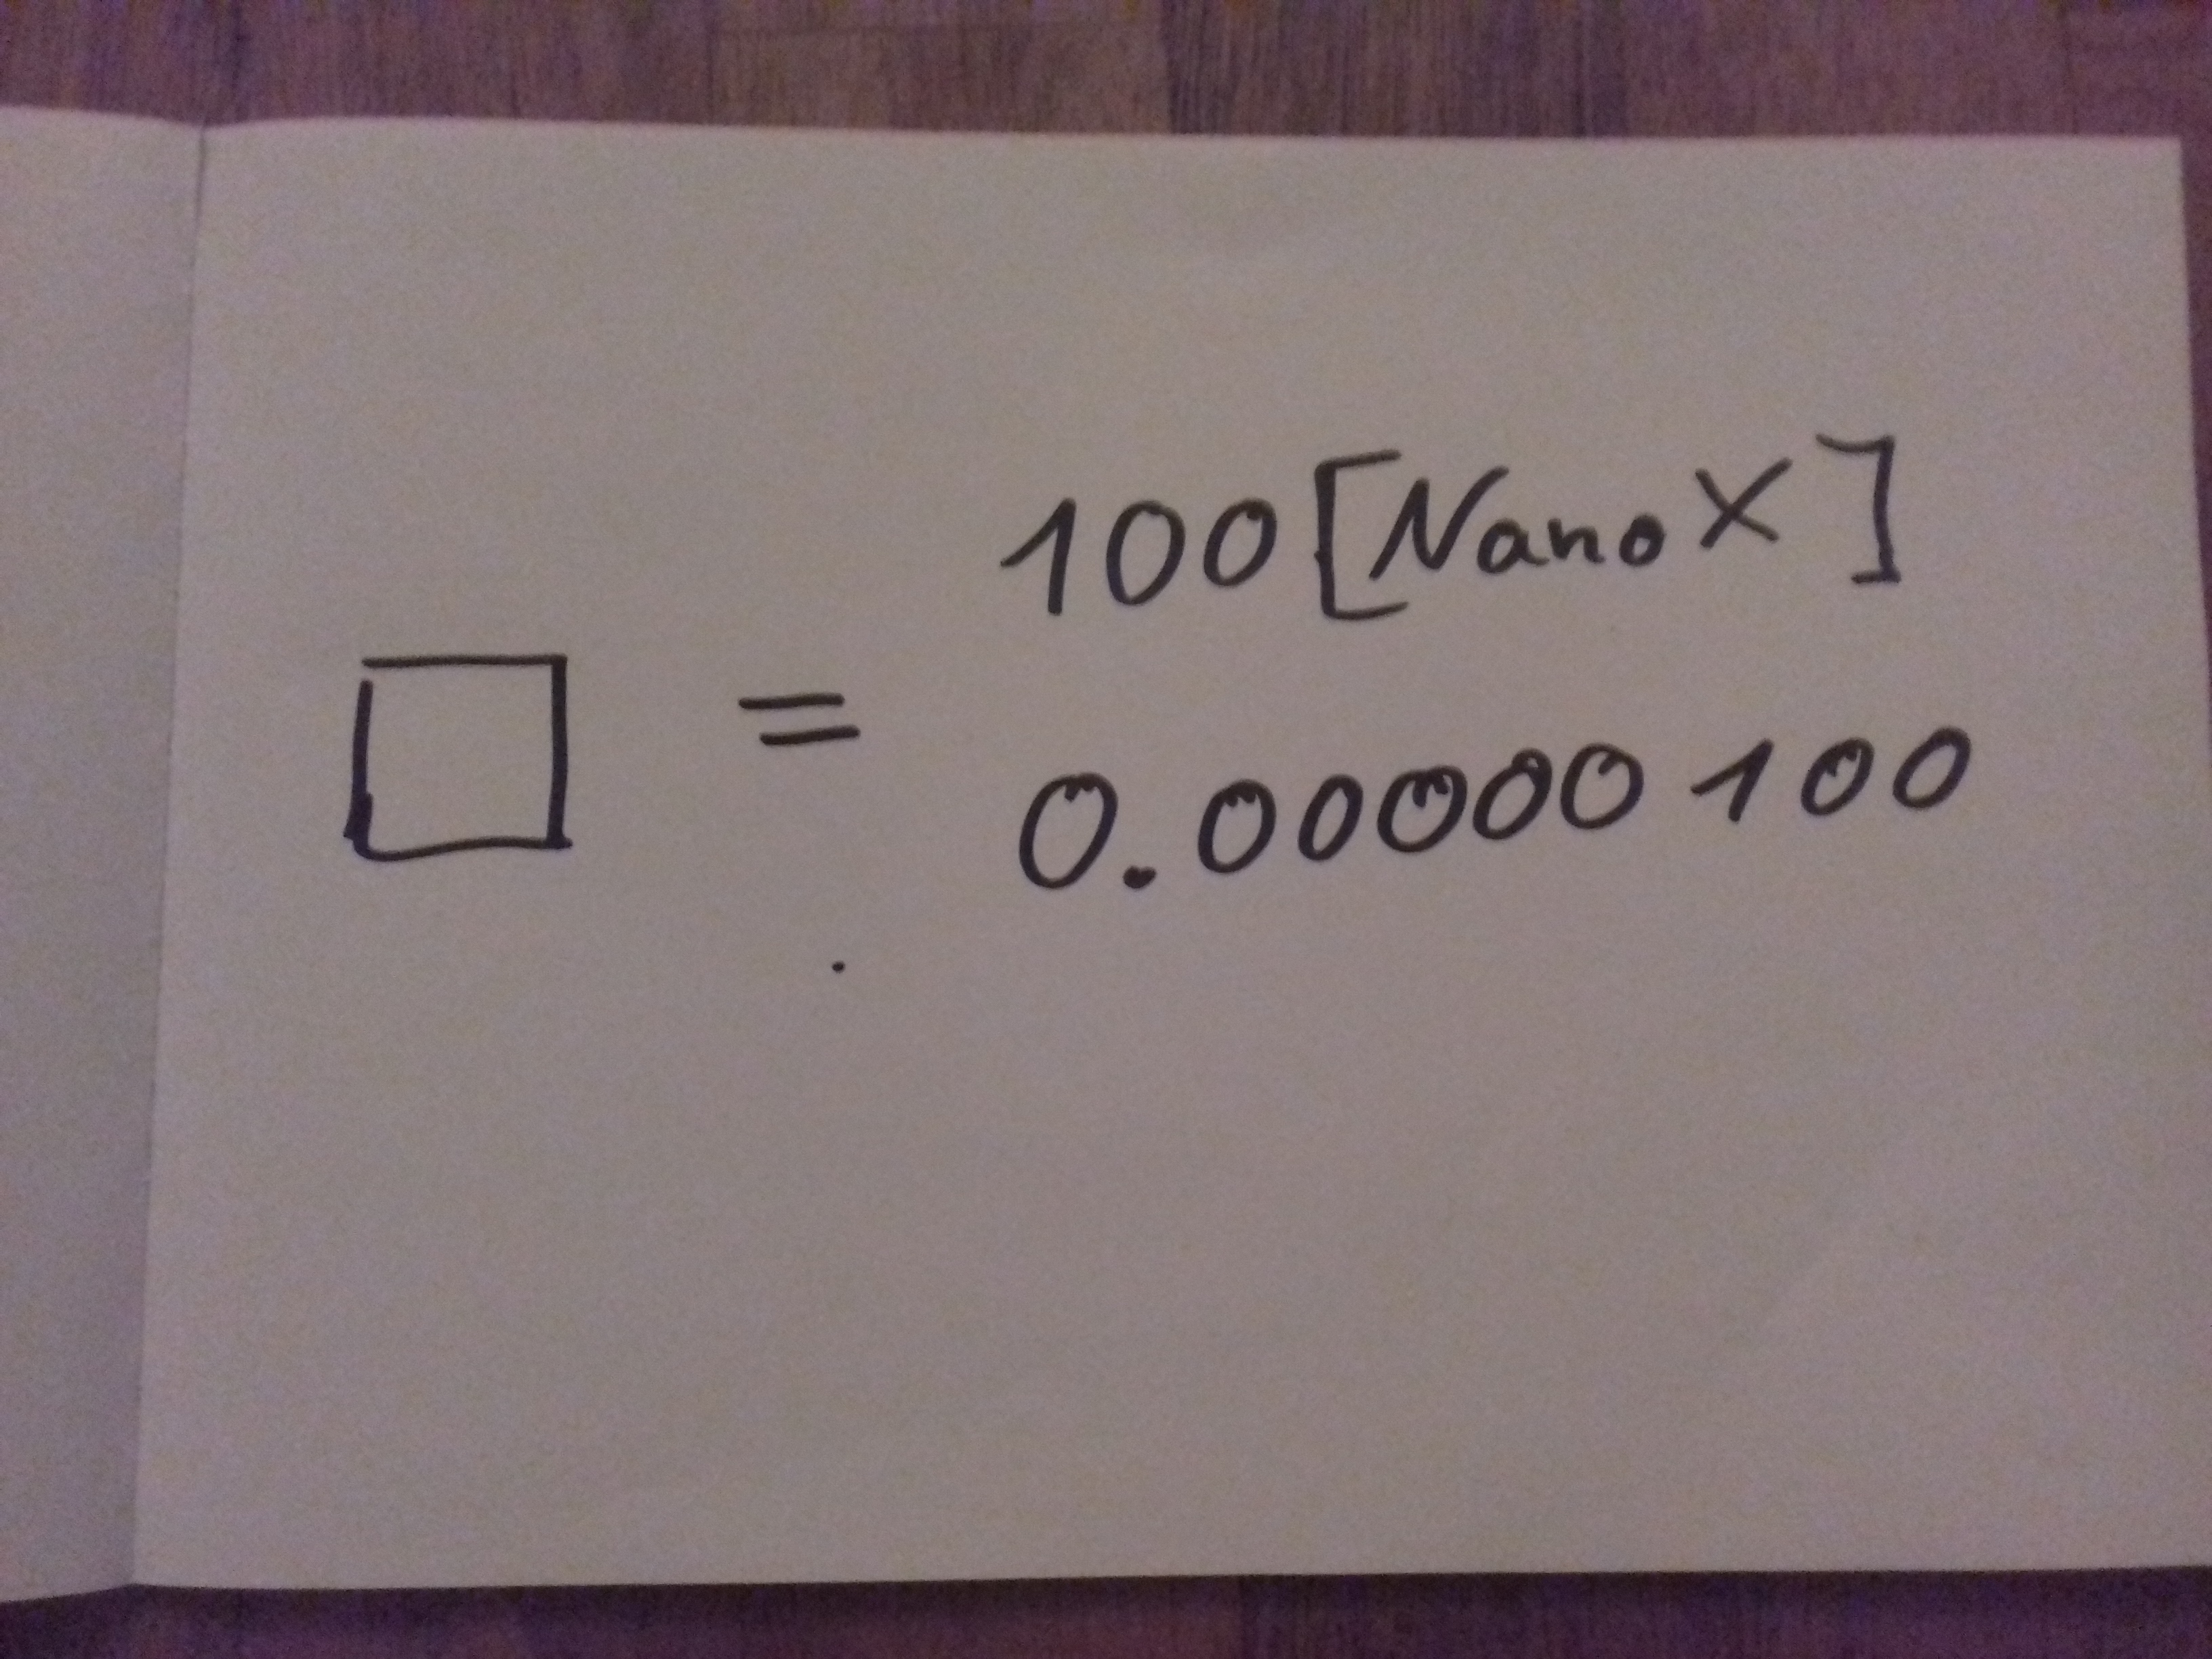 100 [Nano X]
□ =
0.00000 100